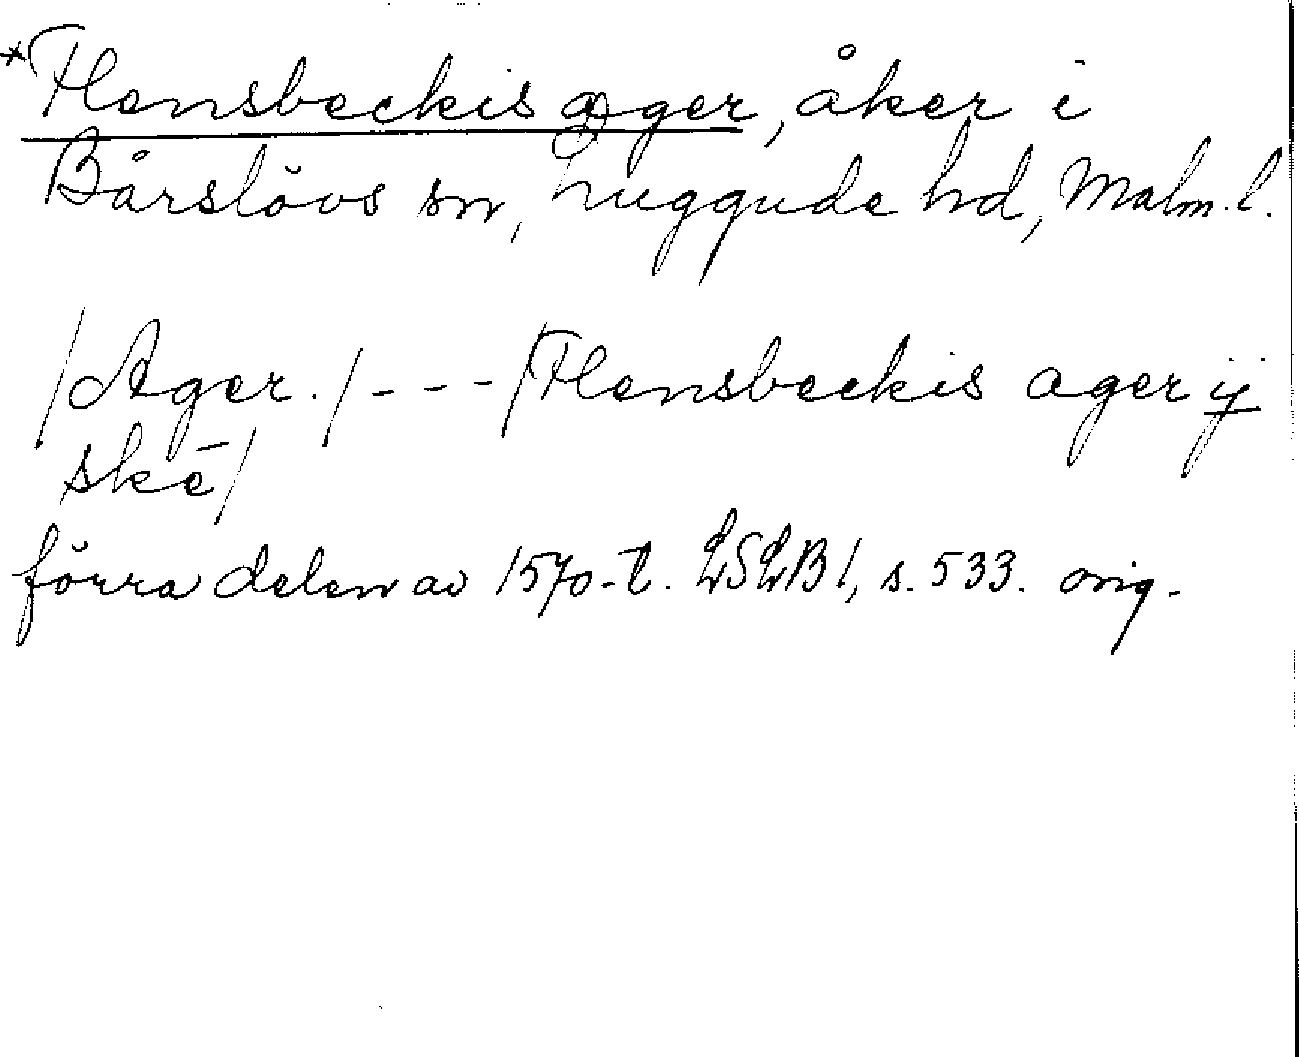 *Flensbeckis ager, åker i
Bårslövs sn, Luggude hd, Malm. l.
/Ager./ - - - /Flensbeckis ager ij
skē/
förra delen av 1570-t. LSLB 1, s. 533. orig.